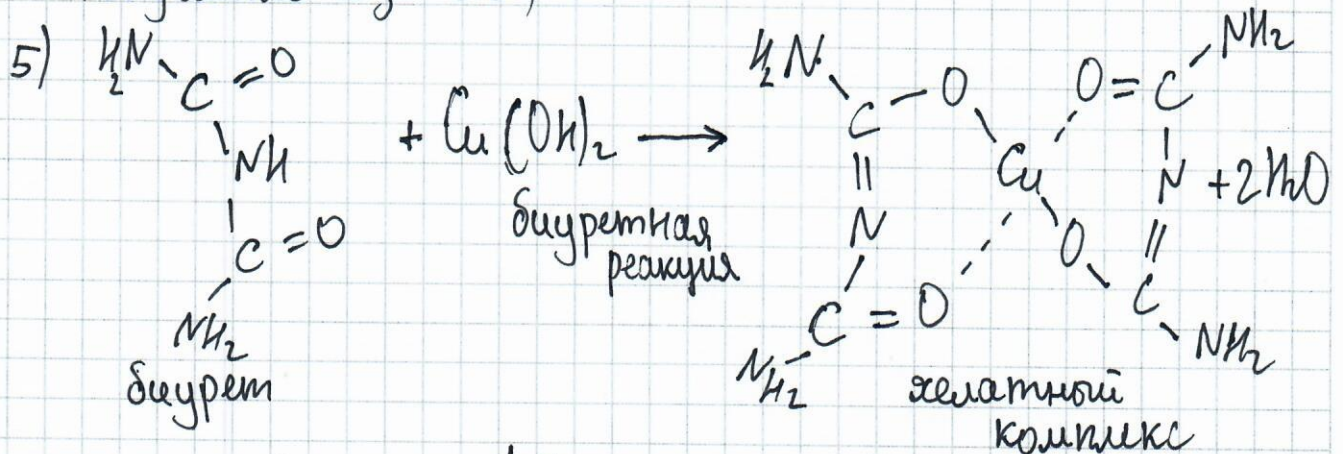 5) H₂N
C = O
NH
C = O
NH₂
биурет
+ Cu(OH)₂ ⟶
биуретная
реакция
H₂N O O = C NH₂
C Cu N + 2H₂O
N O
C = O C
NH₂ NH₂
хелатный
комплекс